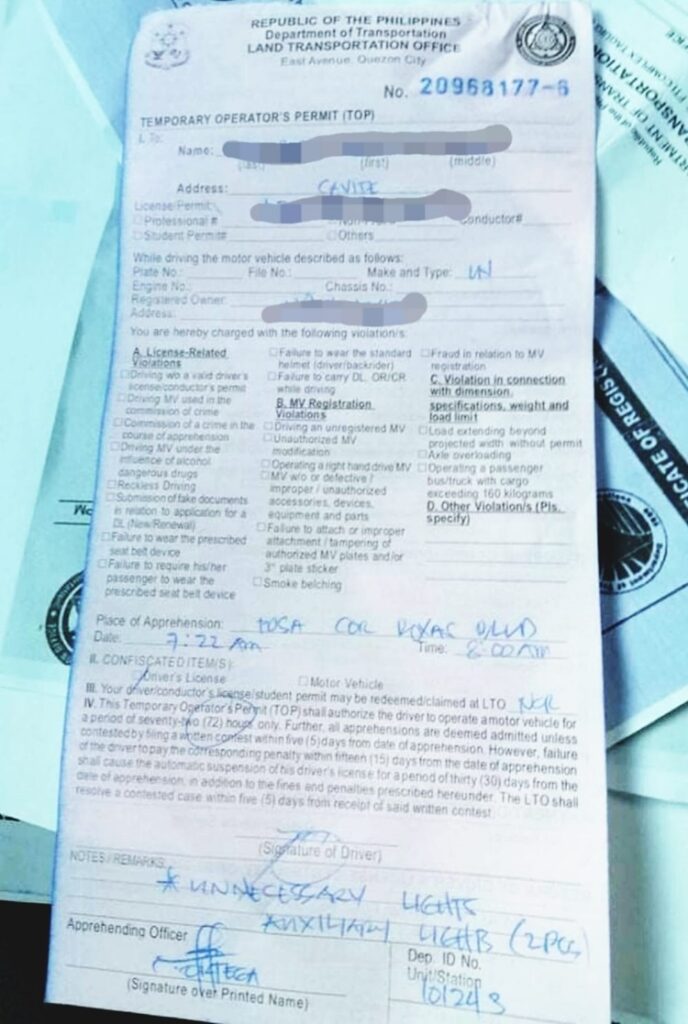 REPUBLIC OF THE PHILIPPINES
Department of Transportation
LAND TRANSPORTATION OFFICE
East Avenue, Quezon City
No. 20968177-6
TEMPORARY OPERATOR'S PERMIT (TOP)
I. To:
Name:
(last) (first) (middle)
Address: CAVITE
License/Permit:
☐Professional # Conductor#
☐Student Permit# ☐Others
While driving the motor vehicle described as follows:
Plate No.: File No.: Make and Type:
Engine No.: Chassis No.:
Registered Owner:
Address:
You are hereby charged with the following violation/s:
A. License-Related
Violations
☐Driving w/o a valid driver's
license/conductor's permit
☐Driving MV used in the
commission of crime
☐Commission of a crime in the
course of apprehension
☐Driving MV under the
influence of alcohol,
dangerous drugs
☐Reckless Driving
☐Submission of fake documents
in relation to application for a
DL (New/Renewal)
☐Failure to wear the prescribed
seat belt device
☐Failure to require his/her
passenger to wear the
prescribed seat belt device
☐Failure to wear the standard
helmet (driver/backrider)
☐Failure to carry DL, OR/CR
while driving
B. MV Registration
Violations
☐Driving an unregistered MV
☐Unauthorized MV
modification
☐Operating a right hand drive MV
☐MV w/o or defective /
improper / unauthorized
accessories, devices,
equipment and parts
☐Failure to attach or improper
attachment / tampering of
authorized MV plates and/or
3rd plate sticker
☐Smoke belching
☐Fraud in relation to MV
registration
C. Violation in connection
with dimension,
specifications, weight and
load limit
☐Load extending beyond
projected width without permit
☐Axle overloading
☐Operating a passenger
bus/truck with cargo
exceeding 160 kilograms
D. Other Violation/s (Pls.
specify)
Place of Apprehension: EDSA COR ROXAS BLVD
Date: 7:22 AM Time: 8:00 AM
II. CONFISCATED ITEM(S):
Driver's License ☐Motor Vehicle
III. Your driver/conductor's license/student permit may be redeemed/claimed at LTO NCR
IV. This Temporary Operator's Permit (TOP) shall authorize the driver to operate a motor vehicle for
a period of seventy-two (72) hours only. Further, all apprehensions are deemed admitted unless
contested by filing a written contest within five (5) days from date of apprehension. However, failure
of the driver to pay the corresponding penalty within fifteen (15) days from the date of apprehension
shall cause the automatic suspension of his driver's license for a period of thirty (30) days from the
date of apprehension, in addition to the fines and penalties prescribed hereunder. The LTO shall
resolve a contested case within five (5) days from receipt of said written contest.
(Signature of Driver)
NOTES / REMARKS:
* UNNECESSARY LIGHTS
AUXILIARY LIGHTS (2PCS)
Apprehending Officer
(Signature over Printed Name)
Dep. ID No.
Unit/Station
101243